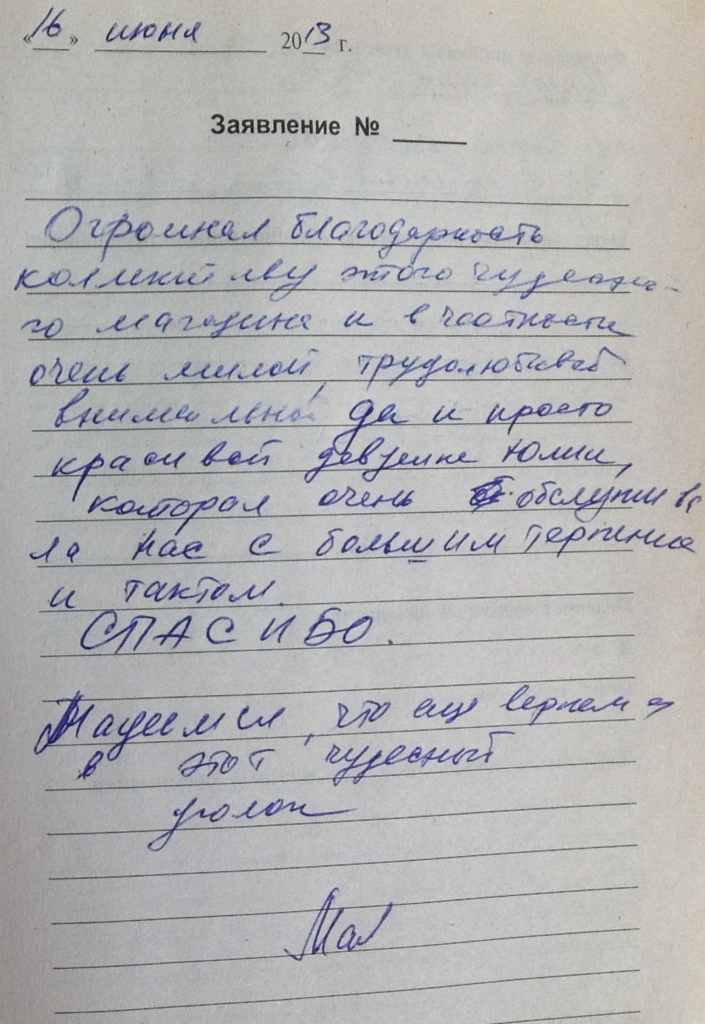 «16» июня 2013 г.
Заявление № ____
Огромная благодарность
коллективу этого чудесно-
го магазина и в частности
очень милой, трудолюбивой
внимательной да и просто
красивой девушке Юлии,
которая очень обслужива
ла нас с большим терпением
и тактом.
СПАСИБО.
Надеемся, что еще вернемся
в этот чудесный
уголок